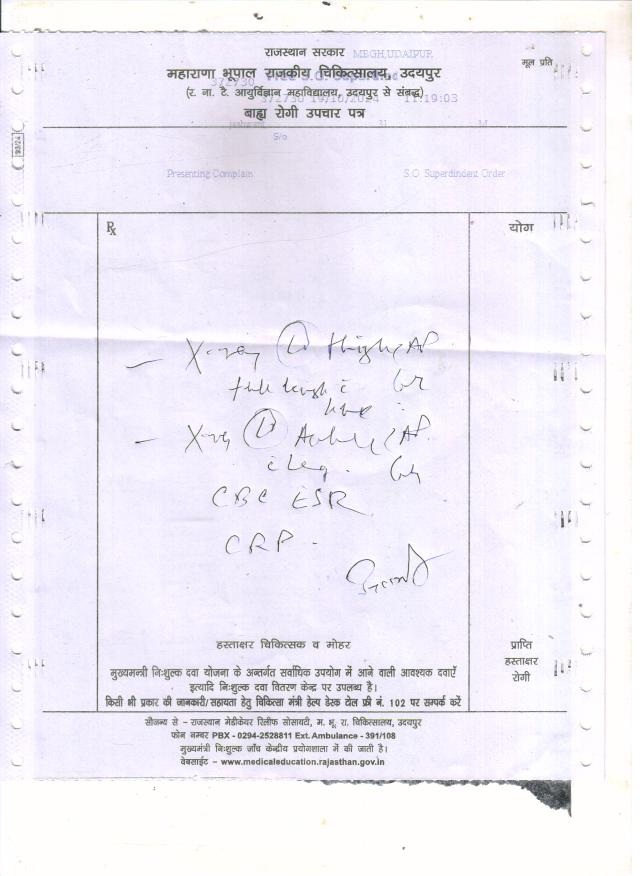 राजस्थान सरकार MBGH,UDAIPUR
मूल प्रति
महाराणा भूपाल राजकीय चिकित्सालय, उदयपुर
(र. ना. टै. आयुर्विज्ञान महाविद्यालय, उदयपुर से संबद्ध)
372730 19/10/2024 11:19:03
बाह्य रोगी उपचार पत्र
31 M
S/o
Presenting Complain S.O. Superdindent Order
Rx योग
- X-ray Thigh AP
full length c
knee
- X-ray Ankle AP
c leg.
CBC ESR
CRP -
हस्ताक्षर चिकित्सक व मोहर
प्राप्ति
हस्ताक्षर
रोगी
मुख्यमन्त्री निःशुल्क दवा योजना के अन्तर्गत सर्वाधिक उपयोग में आने वाली आवश्यक दवाएँ
इत्यादि निःशुल्क दवा वितरण केन्द्र पर उपलब्ध है।
किसी भी प्रकार की जानकारी/सहायता हेतु चिकित्सा मंत्री हेल्प डेस्क टोल फ्री नं. 102 पर सम्पर्क करें
सौजन्य से - राजस्थान मेडीकेयर रिलीफ सोसायटी, म. भू. रा. चिकित्सालय, उदयपुर
फोन नम्बर PBX - 0294-2528811 Ext. Ambulance - 391/108
मुख्यमंत्री निःशुल्क जाँच केन्द्रीय प्रयोगशाला में की जाती है।
वेबसाईट - www.medicaleducation.rajasthan.gov.in